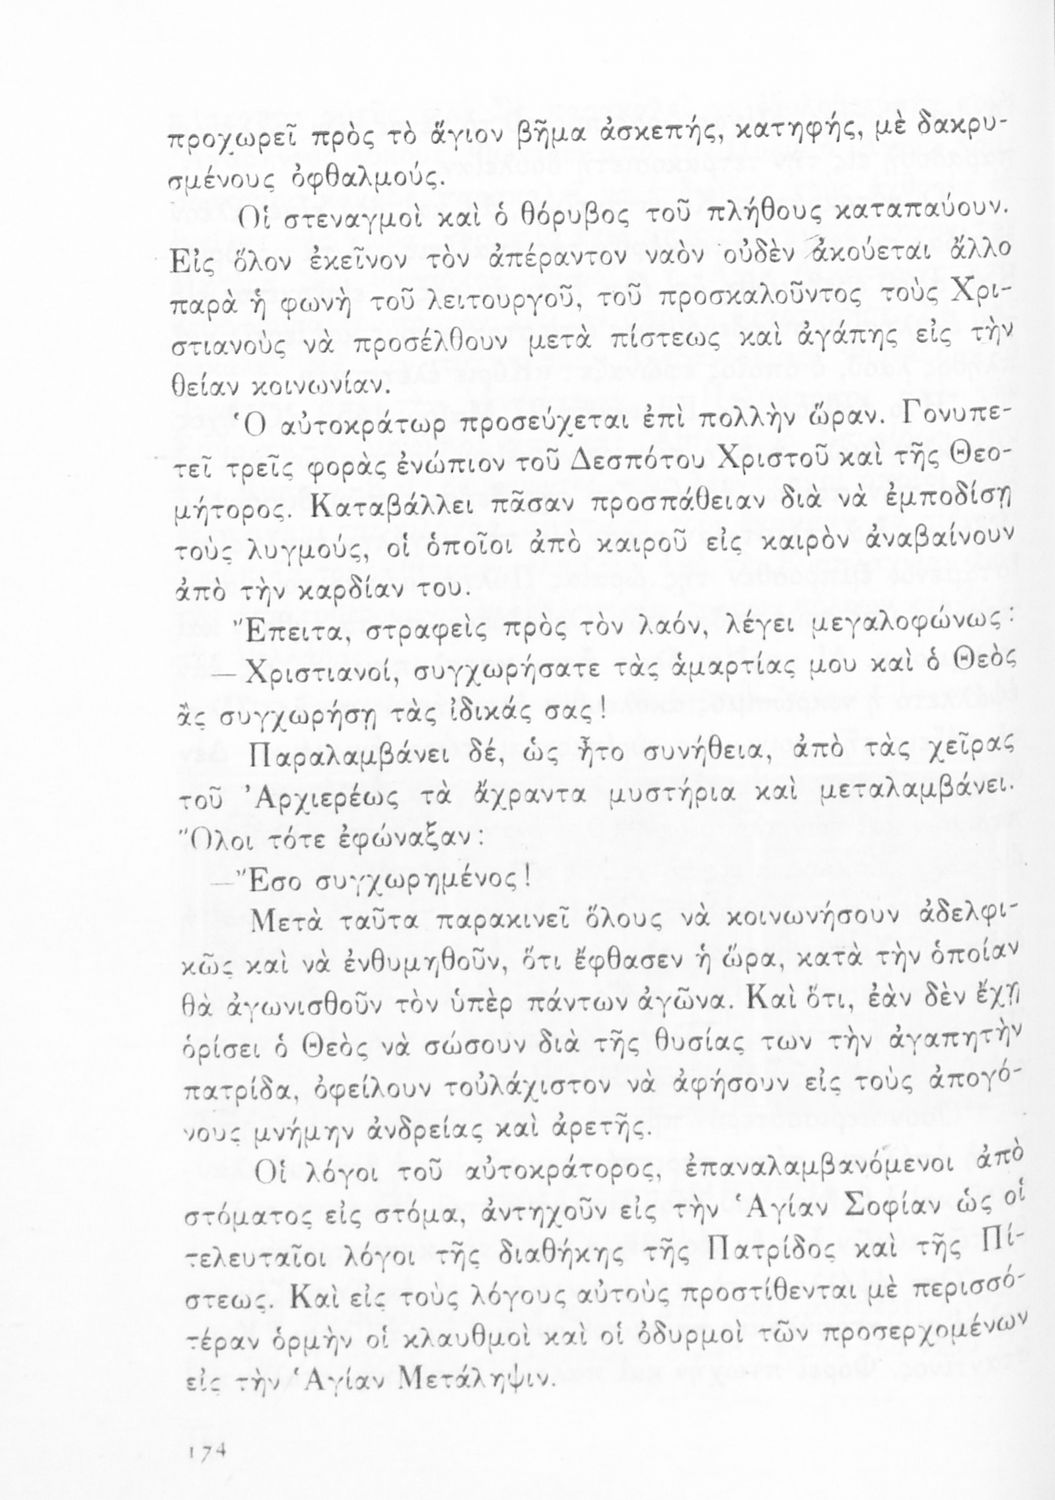 προχωρεῖ πρὸς τὸ ἅγιον βῆμα ἀσκεπής, κατηφής, μὲ δακρυ-
σμένους ὀφθαλμούς.
Οἱ στεναγμοὶ καὶ ὁ θόρυβος τοῦ πλήθους καταπαύουν.
Εἰς ὅλον ἐκεῖνον τὸν ἀπέραντον ναὸν οὐδὲν ἀκούεται ἄλλο
παρὰ ἡ φωνὴ τοῦ λειτουργοῦ, τοῦ προσκαλοῦντος τοὺς Χρι-
στιανοὺς νὰ προσέλθουν μετὰ πίστεως καὶ ἀγάπης εἰς τὴν
θείαν κοινωνίαν.
Ὁ αὐτοκράτωρ προσεύχεται ἐπὶ πολλὴν ὥραν. Γονυπε-
τεῖ τρεῖς φορὰς ἐνώπιον τοῦ Δεσπότου Χριστοῦ καὶ τῆς Θεο-
μήτορος. Καταβάλλει πᾶσαν προσπάθειαν διὰ νὰ ἐμποδίσῃ
τοὺς λυγμούς, οἱ ὁποῖοι ἀπὸ καιροῦ εἰς καιρὸν ἀναβαίνουν
ἀπὸ τὴν καρδίαν του.
Ἔπειτα, στραφεὶς πρὸς τὸν λαόν, λέγει μεγαλοφώνως:
— Χριστιανοί, συγχωρήσατε τὰς ἁμαρτίας μου καὶ ὁ Θεὸς
ἂς συγχωρήσῃ τὰς ἰδικάς σας!
Παραλαμβάνει δέ, ὡς ἦτο συνήθεια, ἀπὸ τὰς χεῖρας
τοῦ Ἀρχιερέως τὰ ἄχραντα μυστήρια καὶ μεταλαμβάνει.
Ὅλοι τότε ἐφώναξαν:
— Ἔσο συγχωρημένος!
Μετὰ ταῦτα παρακινεῖ ὅλους νὰ κοινωνήσουν ἀδελφι-
κῶς καὶ νὰ ἐνθυμηθοῦν, ὅτι ἔφθασεν ἡ ὥρα, κατὰ τὴν ὁποίαν
θὰ ἀγωνισθοῦν τὸν ὑπὲρ πάντων ἀγῶνα. Καὶ ὅτι, ἐὰν δὲν ἔχῃ
ὁρίσει ὁ Θεὸς νὰ σώσουν διὰ τῆς θυσίας των τὴν ἀγαπητὴν
πατρίδα, ὀφείλουν τοὐλάχιστον νὰ ἀφήσουν εἰς τοὺς ἀπογό-
νους μνήμην ἀνδρείας καὶ ἀρετῆς.
Οἱ λόγοι τοῦ αὐτοκράτορος, ἐπαναλαμβανόμενοι ἀπὸ
στόματος εἰς στόμα, ἀντηχοῦν εἰς τὴν Ἁγίαν Σοφίαν ὡς οἱ
τελευταῖοι λόγοι τῆς διαθήκης τῆς Πατρίδος καὶ τῆς Πί-
στεως. Καὶ εἰς τοὺς λόγους αὐτοὺς προστίθενται μὲ περισσο-
τέραν ὁρμὴν οἱ κλαυθμοὶ καὶ οἱ ὀδυρμοὶ τῶν προσερχομένων
εἰς τὴν Ἁγίαν Μετάληψιν.
174